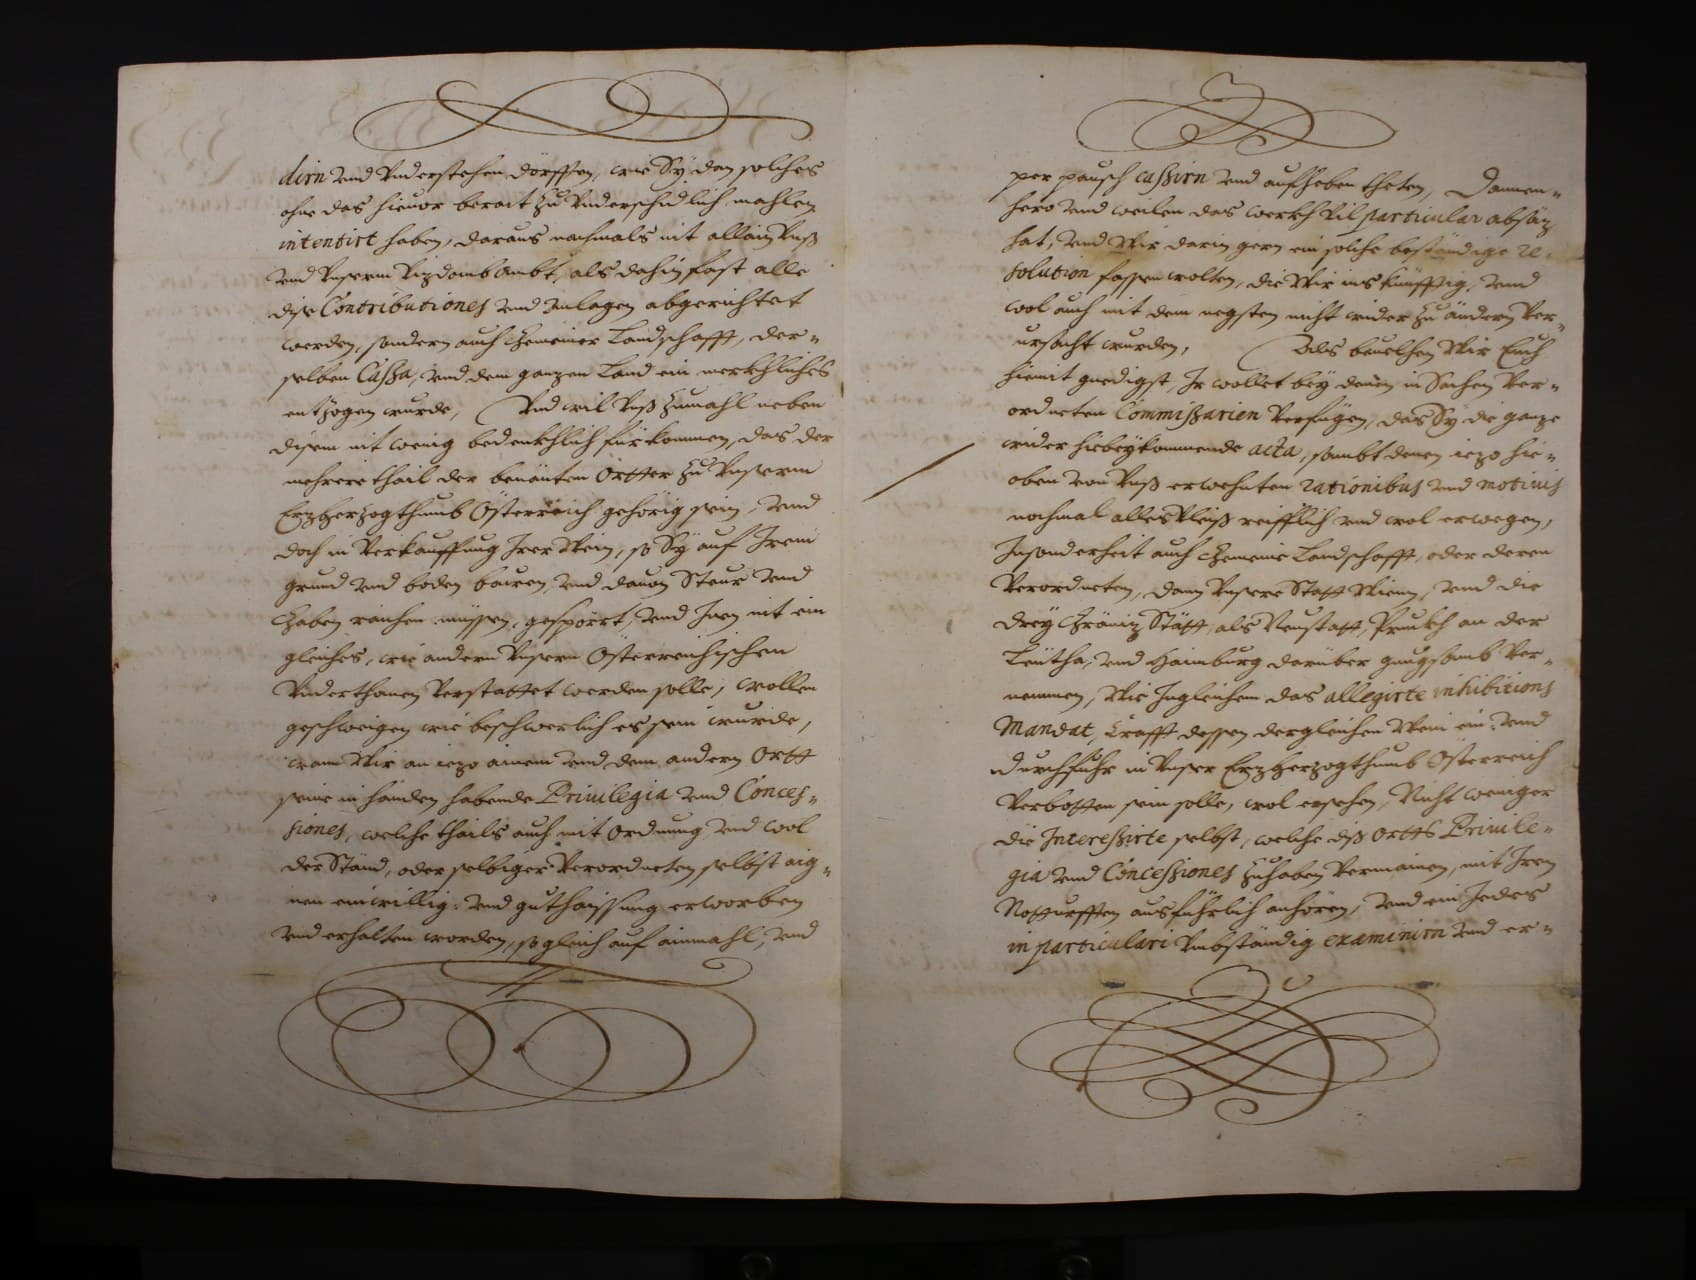 dirn und understehen dörffen, wie Sy dan solches
ohne das hieuor berait zu underschidlich mahlen
intentirt haben, daraus nachmals nit allain Unß
und Unserm Vizdombambt, als dahin fast alle
dise Contributiones und anlagen abgerichtet
werden, sondern auch Gemainer Landschafft, der=
selben Cassa, und dem ganzen Land ein merkhliches
entzogen wurde, Und wil Unß zumahl neben
disem nit wenig bedenkhlich fürkommen, das der
mehrere thail der benänten örtter zu Unserm
Erzherzogthumb Österreich gehörig sein, und
doch in Verkauffung Irer Wein, so Sy auf Irem
grund und boden bauen, und dauon Steur und
Gaben raichen müssen, gespörrt, und Inen nit ein
gleiches, wie andern Unsern Österreichischen
Underthanen Verstattet werden solle, wollen
geschweigen wie beschwerlich es sein wurde,
wann Wir an iezo ainem und dem andern Ortt
seine in handen habende Priuilegia und Conces=
siones, welche thails auch mit ordnung, und wol
der Ständ, oder selbiger Verordneten selbst aig=
nen einwillig: und guthaissung erworben
und erhalten worden, so gleich auf ainmahl, und
per pausch cassirn und aufheben theten, Dannen=
hero und weilen das werkh Vil particular absäz
hat, und Wir darin gern ein solche beständige re=
solution fassen wolten, die Wir ins künfftig, und
wol auch mit dem negsten nicht wider zu ändern Ver=
ursacht wurden, Als beuelhen Wir Euch
hiemit gnedigst, Ir wollet bey denen in Sachen Ver=
ordneten Commissarien Verfügen, das Sy die ganze
wider hiebeykommende acta, sambt denen iezo hie=
oben von Unß erwehnten rationibus und motiuis
nochmal alles Vleiß reifflich und wol erwegen,
Insonderheit auch Gemaine Landschafft, oder deren
Verordneten, dann Unsere Statt Wienn, und die
drey Gräniz Stätt, als Neustatt, Prukh an der
Leütha, und Haimburg darüber gnugsamb Ver=
nemmen, Wie Ingleichem das allegirte inhibitions
Mandat, Crafft dessen dergleichen Wein ein: und
durchfuhr in Unser Erzherzogthumb Österreich
Verbotten sein solle, wol ersehen, Nicht weniger
die Interessirte selbst, welche diß Ortts Priuile=
gia und Concessiones zuhaben Vermainen, mit Iren
Notturfften ausführlich anhören, und ein Jedes
in particulari Umbständig examinirn und er=